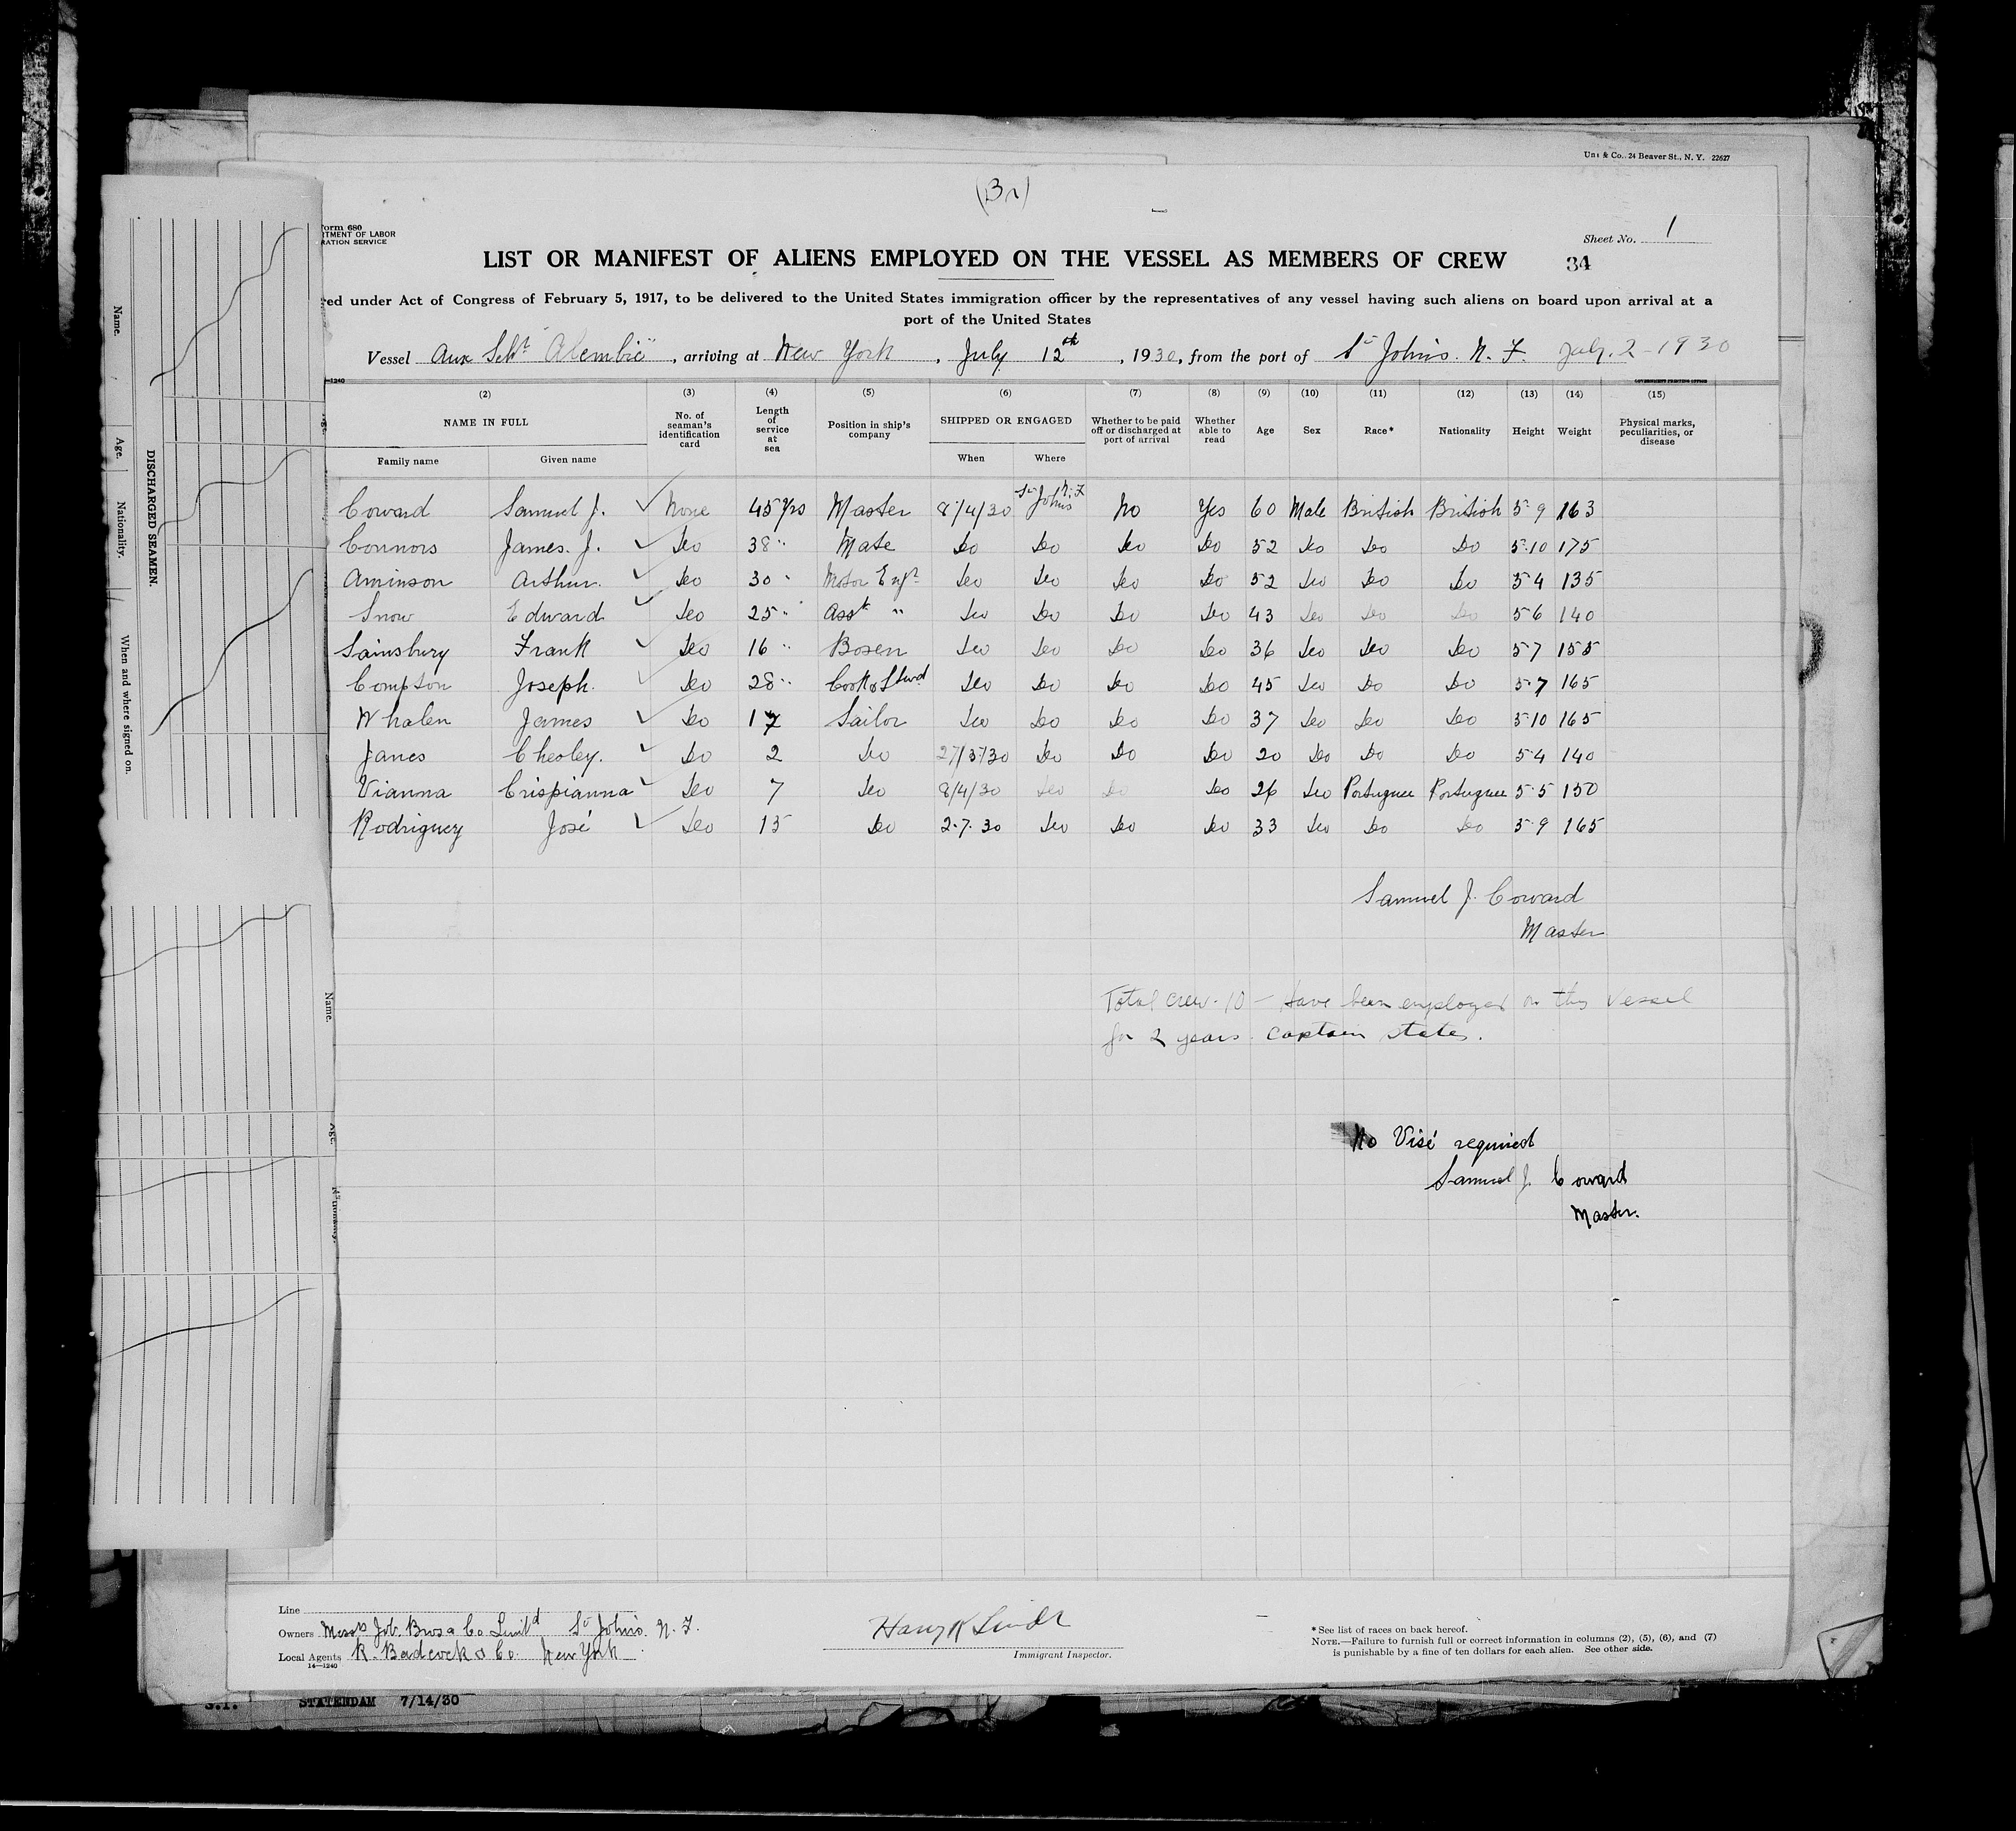 Uni & Co., 24 Beaver St., N. Y. 22627
(Br)
orm 680
TMENT OF LABOR
RATION SERVICE
Sheet No. 1
LIST OR MANIFEST OF ALIENS EMPLOYED ON THE VESSEL AS MEMBERS OF CREW 34
ed under Act of Congress of February 5, 1917, to be delivered to the United States immigration officer by the representatives of any vessel having such aliens on board upon arrival at a
port of the United States
Vessel Aux Schr "Alembic", arriving at New York, July 12th, 1930, from the port of St Johns. N. F. July. 2 - 1930
—1240 GOVERNMENT PRINTING OFFICE
(2) (3) (4) (5) (6) (7) (8) (9) (10) (11) (12) (13) (14) (15)
NAME IN FULL No. of seaman's identification card Length of service at sea Position in ship's company SHIPPED OR ENGAGED Whether to be paid off or discharged at port of arrival Whether able to read Age Sex Race* Nationality Height Weight Physical marks, peculiarities, or disease
Family name Given name When Where
Coward Samuel J. ✓ None 45 yrs Master 8/4/30 St Johns N.F No Yes 60 Male British British 5 9 163
Connors James. J. ✓ Do 38 " Mate Do Do Do Do 52 Do Do Do 5.10 175
Aminson Arthur. ✓ Do 30 " Motor Engr Do Do Do Do 52 Do Do Do 5 4 135
Snow Edward ✓ Do 25 " Asst " Do Do Do Do 43 Do Do Do 5 6 140
Sainsbury Frank ✓ Do 16 " Bosen Do Do Do Do 36 Do Do Do 5 7 155
Compton Joseph. ✓ Do 28 " Cook & Stwd Do Do Do Do 45 Do Do Do 5.7 165
Whalen James ✓ Do 17 Sailor Do Do Do Do 37 Do Do Do 5 10 165
Janes Chesley. ✓ Do 2 Do 27/3/30 Do Do Do 20 Do Do Do 5.4 140
Vianna Crispianna ✓ Do 7 Do 8/4/30 Do Do Do 26 Do Portuguee Portuguee 5.5 150
Rodriguez José ✓ Do 15 Do 2.7.30 Do Do Do 33 Do Do Do 5.9 165
Samuel J. Coward
Master
Total crew. 10 - Have been employed on this vessel
for 2 years. Captain states.
No Visé required
Samuel J. Coward
Master.
Line
Owners Messrs Job. Bros & Co Limitd St Johns N. F.
Local Agents R. Badcock & Co. New York
14—1240
Immigrant Inspector.
* See list of races on back hereof.
NOTE.—Failure to furnish full or correct information in columns (2), (5), (6), and (7)
is punishable by a fine of ten dollars for each alien. See other side.
S.I. STATENDAM 7/14/30
DISCHARGED SEAMEN.
Name. Age. Nationality. When and where signed on.
Name. Age. Nationality.